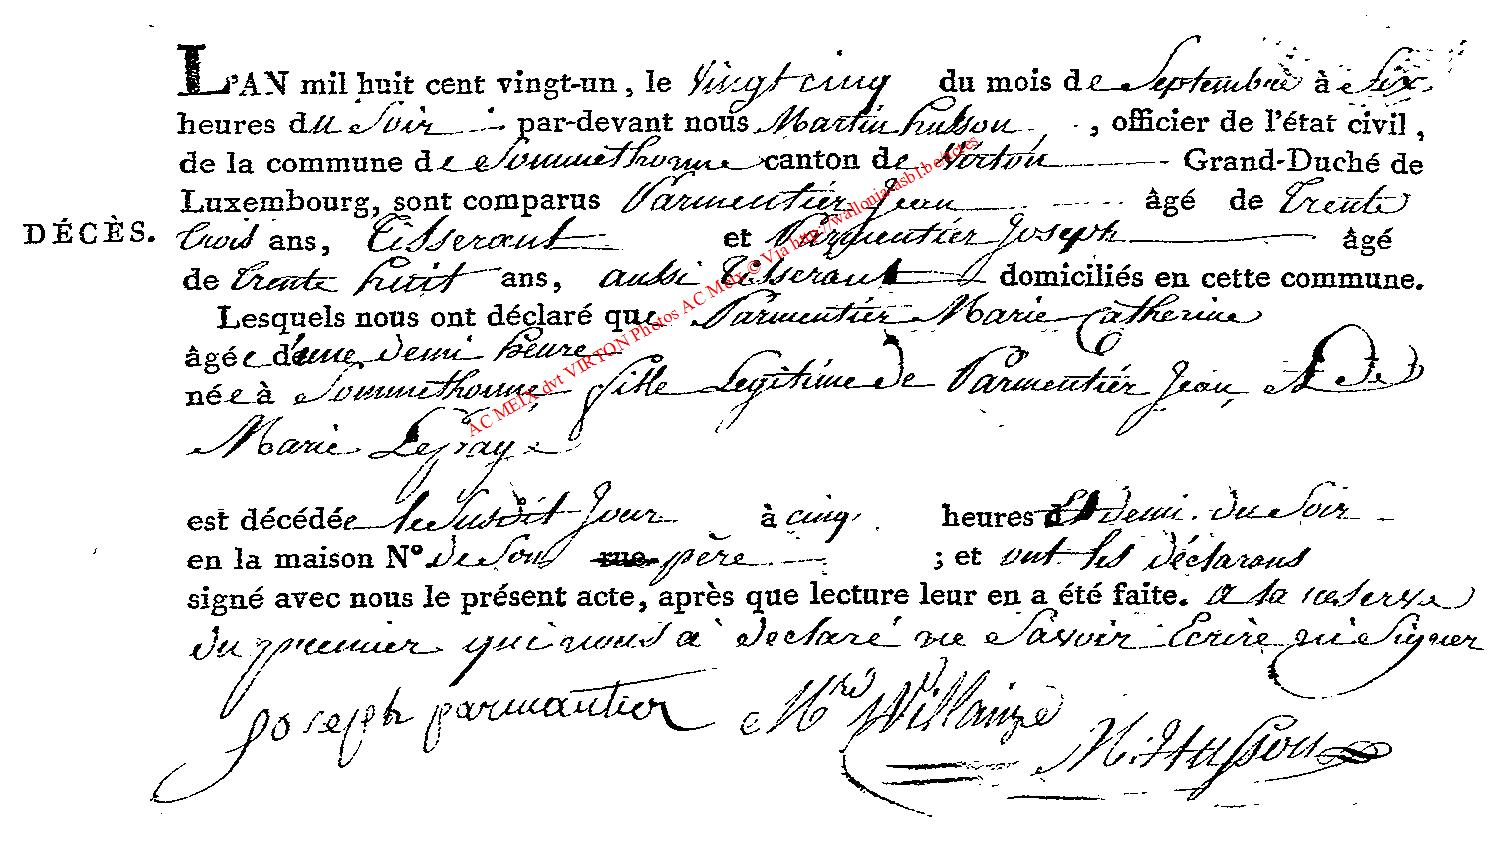 L'AN mil huit cent vingt-un, le vingt cinq du mois de Septembre à Six
heures du Soir par-devant nous Martin husson, officier de l'état civil,
de la commune de Sommethonne canton de Virton Grand-Duché de
Luxembourg, sont comparus Parmentier Jean âgé de trente
DÉCÈS. trois ans, Tisserant et Parmentier Joseph âgé
de trente huit ans, aussi Tisserant domiciliés en cette commune.
Lesquels nous ont déclaré que Parmentier Marie Catherine
âgée d'une demi heure
née à Sommethonne fille Legitime de Parmentier Jean, et De
Marie
est décédée le Susdit Jour à cinq heures et demi du Soir
en la maison N° de Son rue père ; et ont les déclarans
signé avec nous le présent acte, après que lecture leur en a été faite. a la reserve
du premier qui nous a declaré ne Savoir Ecrire ni Signer
Joseph parmantier
M. Husson
AC MEIX dvt VIRTON Photos AC Meix © Via http://wallonia-asbl.be/actes